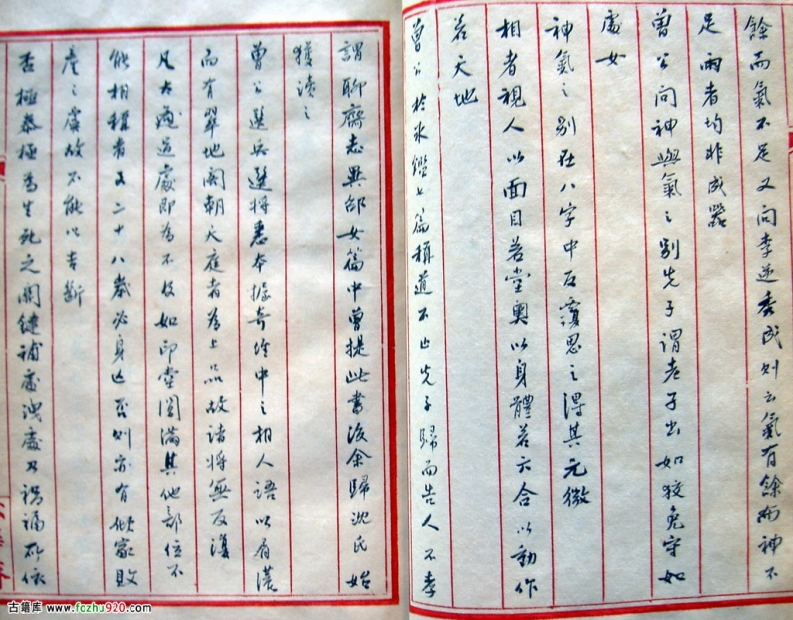 餘而氣不足又问李逆秀成则云氣有餘而神不
足兩者均非成器
曾公问神與氣之别先子謂老子出如狡兔守如
處女
神氣之别在八字中反覆思之得其元微
相者視人以面目若堂奥以身體若六合以動作
若天地
曾公於冰鑑七篇稱道不止先子歸而告人不孝
謂聊齋志異邵女篇中曾提此書後余歸沈氏始
獲讀之
曾公選兵選将悉本據奇堂中之相人語以眉濃
而有翠地阁朝天庭者為上品故诸将無反復
凡大過處即為不及如印堂圆滿其他部位不
能相稱者五二十八歲必身亡否则亦有傾家敗
産之虞故不能以吉断
否極泰極為生死之關鍵補處洩處乃禍福所依
古籍库 www.fczhu920.com